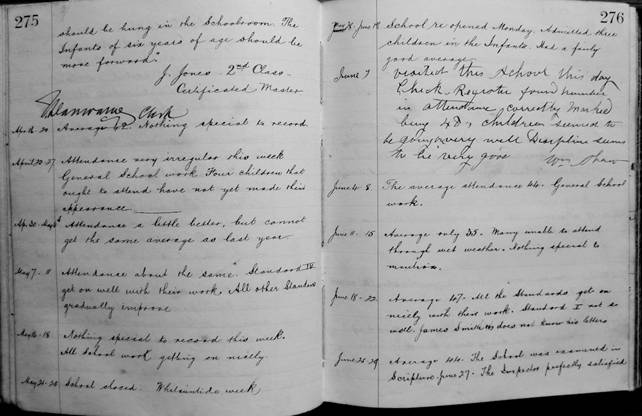 275
should be hung in the Schoolroom. The
Infants of six years of age should be
more forward."
J. Jones - 2nd Class
Certificated Master
Clerk
Average 42. Nothing special to record.
April 23-27 Attendance very irregular this week
General School work. Four children that
ought to attend have not yet made their
appearance
Apr. 30 - May 4th Attendance a little better, but cannot
get the same average as last year
May 7 - 11 Attendance about the same. Standard IV
get on well with their work. All other Standards
gradually improve
Nothing special to record this week.
All School work getting on nicely
School closed. Whitsuntide week
276
June 1st School re opened Monday. Admitted three
children in the Infants. Had a fairly
good average
June 7 Visited this School this day
Check Register found number
in attendance correctly marked
being 48, children seemed to
be going very well Discipline seems
to be very good
Wm Shaw
June 4 - 8 The average attendance 44. General School
work.
June 11 - 15 Average only 35. Many unable to attend
through wet weather. Nothing special to
mention.
June 18 - 22 Average 47. All the Standards get on
nicely with their work. Standard I not so
well. James Smith does not know his letters
June 25-29 Average 44. The School was examined in
Scripture June 27. The Inspector perfectly satisfied